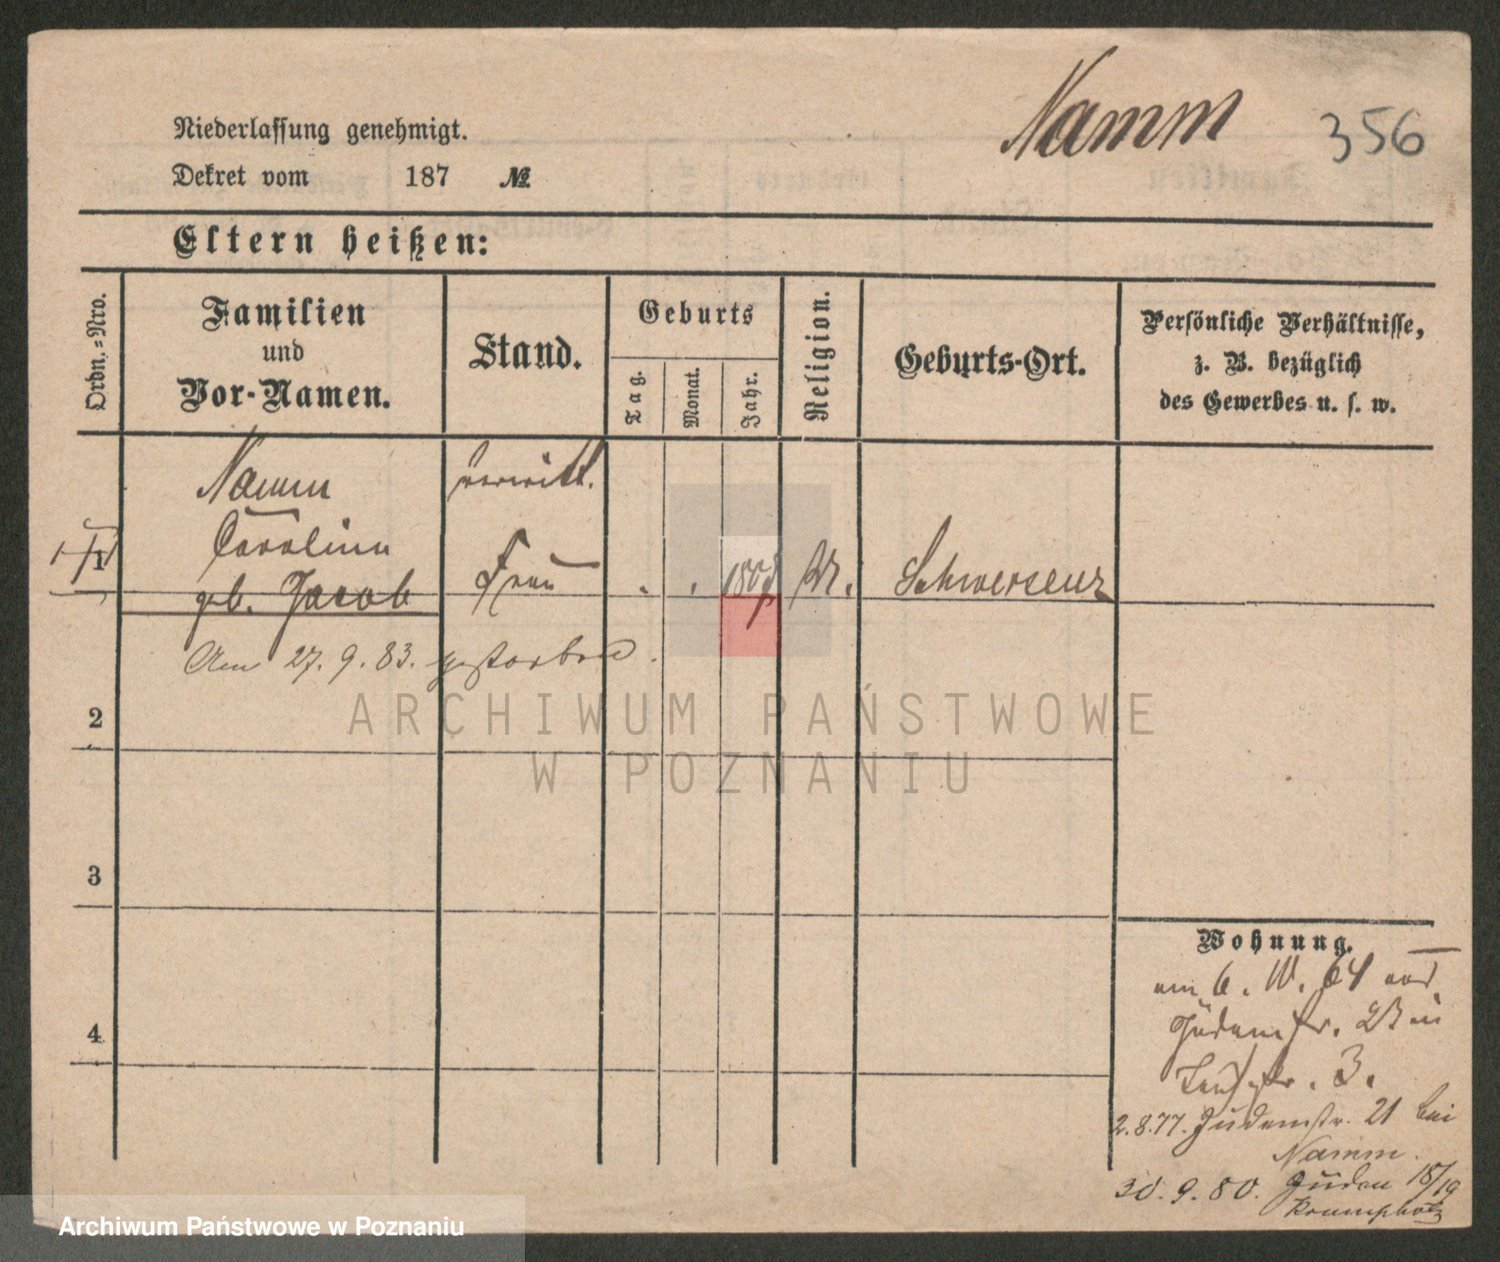 Namm 356
Niederlassung genehmigt.
Dekret vom 187 №
Eltern heißen:
Ordn.=Nro.
Familien
und
Vor-Namen.
Stand.
Geburts
Tag.
Monat.
Jahr.
Religion.
Geburts-Ort.
Persönliche Verhältnisse,
z. B. bezüglich
des Gewerbes u. s. w.
Namm verwitt.
Caroline
1 geb. Jacob Frau Schwersenz
Am 27. 9. 83. gestorben.
2
3
4
Wohnung.
6. 64
Judenstr.
3.
2.8.77. Judenstr. 21 bei
Namm.
30. 9. 80. Juden 18/19
Krumpholz
ARCHIWUM PAŃSTWOWE
W POZNANIU
Archiwum Państwowe w Poznaniu